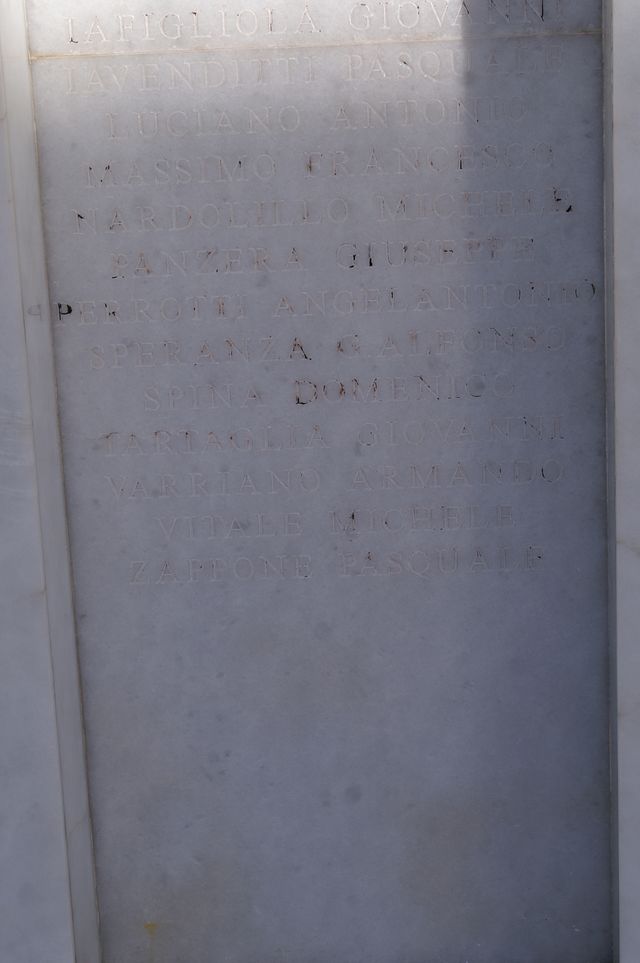 IAFIGLIOLA GIOVANNI
IAVENDITTI PASQUALE
LUCIANO ANTONIO
MASSIMO FRANCESCO
NARDOLILLO MICHELE
PANZERA GIUSEPPE
PERROTTI ANGELANTONIO
SPERANZA G.ALFONSO
SPINA DOMENICO
TARTAGLIA GIOVANNI
VARRIANO ARMANDO
VITALE MICHELE
ZAPPONE PASQUALE